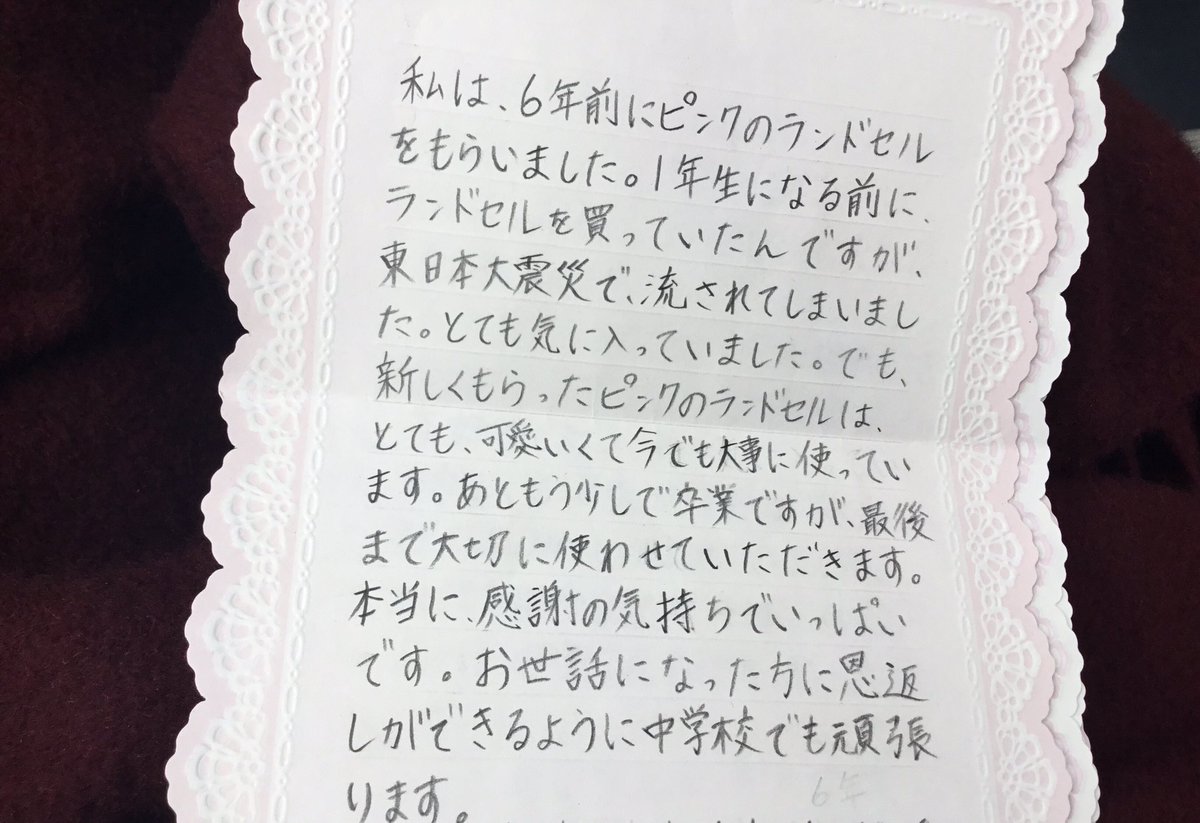 私は、6年前にピンクのランドセル
をもらいました。1年生になる前に、
ランドセルを買っていたんですが、
東日本大震災で、流されてしまいまし
た。とても気に入っていました。でも、
新しくもらったピンクのランドセルは、
とても、可愛いくて今でも大事に使ってい
ます。あともう少しで卒業ですが、最後
まで大切に使わせていただきます。
本当に、感謝の気持ちでいっぱい
です。お世話になった方に恩返
しができるように中学校でも頑張
ります。
6年